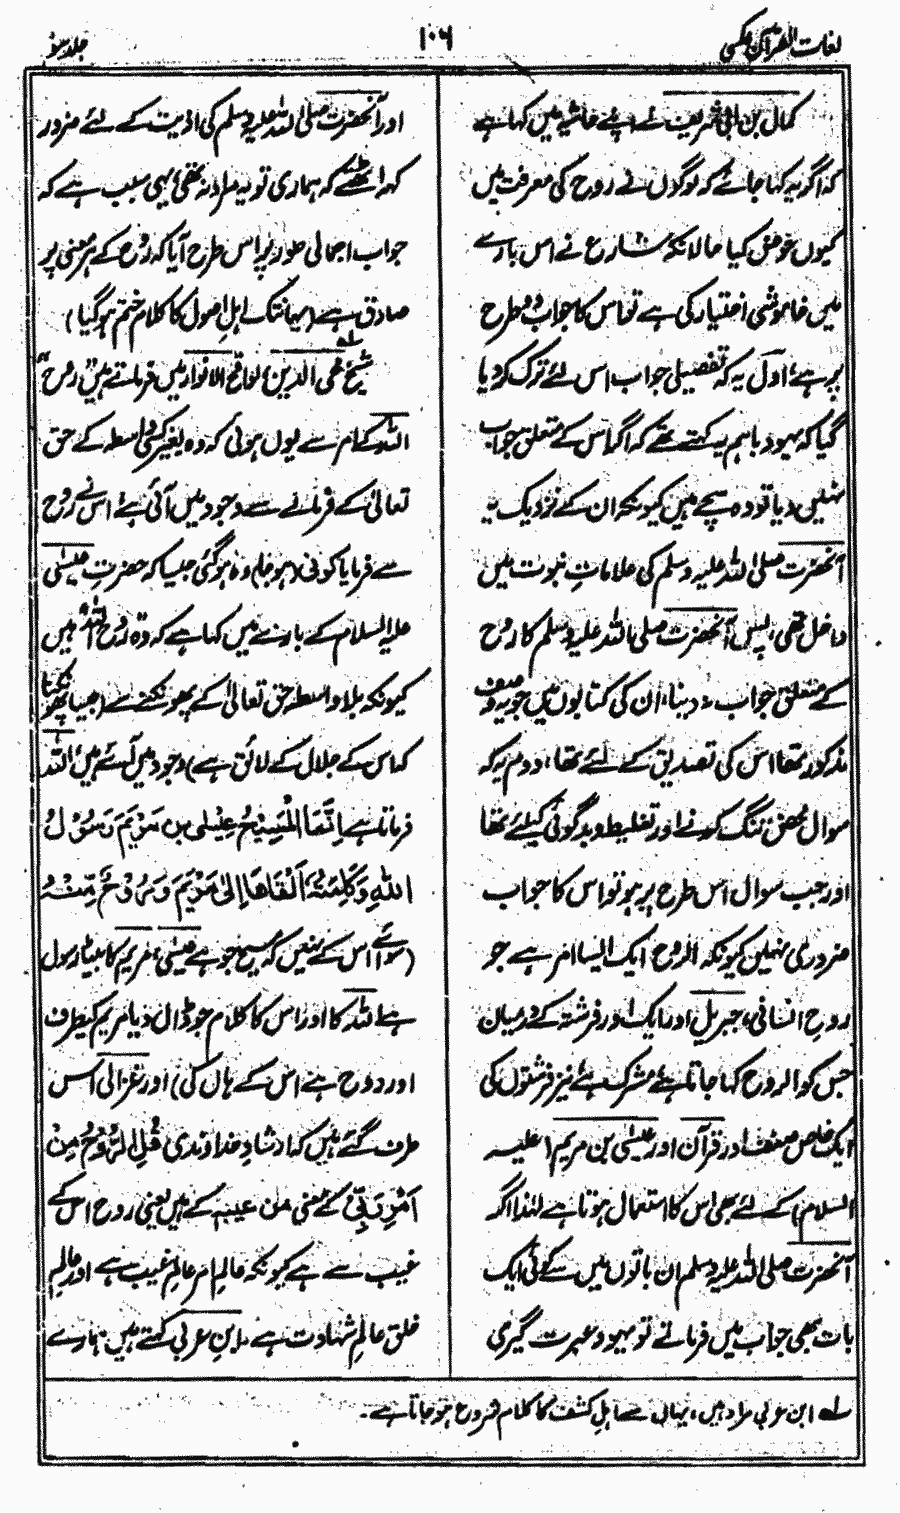 لغات القرآن عکسی
۱۰۶
جلد سوم
کمال بن ابی شریف نے اپنے حاشیہ میں کہا ہے
کہ اگر یہ کہا جائے کہ لوگوں نے روح کی معرفت میں
کیوں خوض کیا حالانکہ شارع نے اس بارے
میں خاموشی اختیار کی ہے تو اس کا جواب دو طرح
پر ہے، اول یہ کہ تفصیلی جواب اس لئے ترک کر دیا
گیا کہ یہود باہم یہ کہتے تھے کہ اگر اس کے متعلق جواب
نہیں دیا تو وہ سچے ہیں کیونکہ ان کے نزدیک یہ
آنحضرت صلی اللہ علیہ وسلم کی علاماتِ نبوت میں
داخل تھی، پس آنحضرت صلی اللہ علیہ وسلم کا روح
کے متعلق جواب نہ دینا، ان کی کتابوں میں جو یہ وصف
مذکور تھا اس کی تصدیق کے لئے تھا، دوم یہ کہ
سوال محض تنگ کرنے اور تغلیط و بدگوئی کیلئے تھا
اور جب سوال اس طرح پر ہو تو اس کا جواب
ضروری نہیں کیونکہ الروح ایک ایسا امر ہے جو
روحِ انسانی، جبریل، اور ایک اور فرشتہ کے درمیان
جس کو الروح کہا جاتا ہے مشترک ہے نیز فرشتوں کی
ایک خاص صنف اور قرآن اور عیسٰی بن مریم (علیہ
السلام) کے لئے بھی اس کا استعمال ہوتا ہے لہٰذا اگر
آنحضرت صلی اللہ علیہ وسلم ان باتوں میں سے کوئی ایک
بات بھی جواب میں فرماتے تو یہود عبرت گیری
اور آنحضرت صلی اللہ علیہ وسلم کی اذیت کے لئے ضرور
کہہ اٹھتے کہ ہماری تو یہ مراد نہ تھی، یہی سبب ہے کہ
جواب اجمالی طور پر اس طرح آیا کہ روح کے ہر معنی پر
صادق ہے (یہانتک اہلِ اصول کا کلام ختم ہو گیا)
شیخ محی الدین لواقح الانوار میں فرماتے ہیں "روح
اللہ کے نام سے یوں ہوئی کہ وہ بغیر کسی واسطہ کے حق
تعالیٰ کے فرمانے سے وجود میں آئی ہے، اس نے روح
سے فرمایا کونی (ہو جا) وہ ہو گئی جیسا کہ حضرت عیسٰی
علیہ السلام کے بارے میں کہا ہے کہ وہ روح اللہ ہیں
کیونکہ بلا واسطہ حق تعالیٰ کے پھونکنے سے (جیسا پھونکنا
کہ اس کے جلال کے لائق ہے) وجود میں آئے ہیں، اللہ
فرماتا ہے اِنَّمَا الْمَسِیْحُ عِیْسٰی بن مَرْیَمَ رَسُوْلُ
اللہِ وَکَلِمَتُہٗ اَلْقَاھَا اِلٰی مَرْیَمَ وَرُوْحٌ مِّنْہُ
(سوائے اس کے نہیں کہ مسیح جو ہے عیسٰی، مریم کا بیٹا، رسول
ہے اللہ کا اور اس کا کلام جو ڈال دیا مریم کیطرف
اور روح ہے اس کے ہاں کی) اور غزالی اس
طرف گئے ہیں کہ ارشادِ خداوندی قُلِ الرُّوْحُ مِنْ
اَمْرِ رَبِّیْ کے معنی من غیبہ کے ہیں یعنی روح اس کے
غیب سے ہے کیونکہ عالمِ امر عالمِ غیب ہے اور عالمِ
خلق عالمِ شہادت ہے، ابن عربی کہتے ہیں ہمارے
لہ ابن عربی مراد ہیں، یہاں سے اہلِ کشف کا کلام شروع ہو جاتا ہے۔